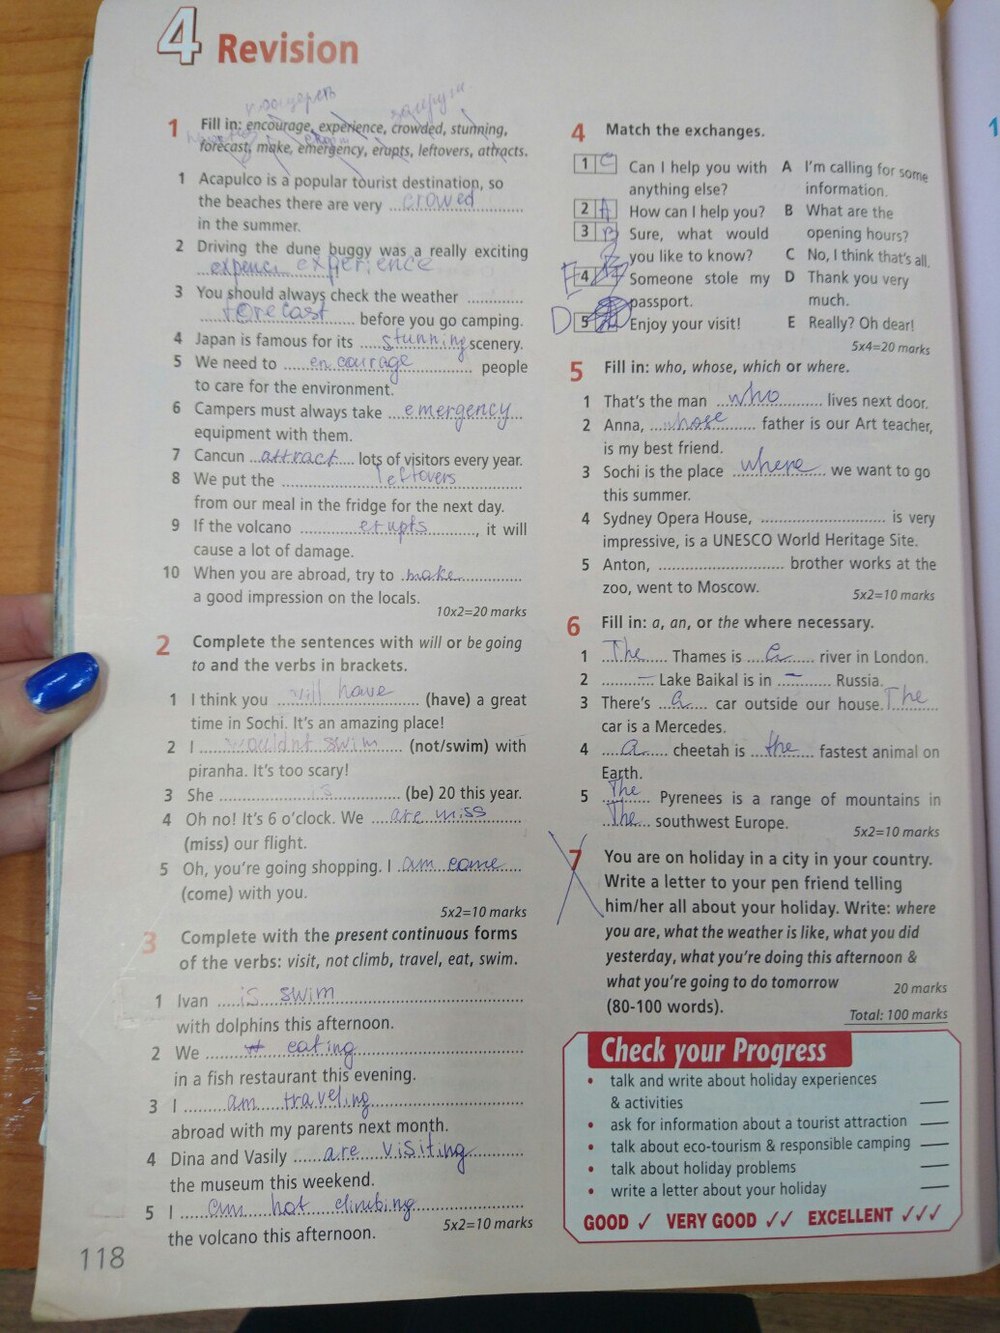 4 Revision
1 Fill in: encourage, experience, crowded, stunning,
forecast, make, emergency, erupts, leftovers, attracts.
1 Acapulco is a popular tourist destination, so
the beaches there are very crowed
in the summer.
2 Driving the dune buggy was a really exciting
experience
3 You should always check the weather
forecast before you go camping.
4 Japan is famous for its stunning scenery.
5 We need to encourage people
to care for the environment.
6 Campers must always take emergency
equipment with them.
7 Cancun attract lots of visitors every year.
8 We put the leftovers
from our meal in the fridge for the next day.
9 If the volcano erupts, it will
cause a lot of damage.
10 When you are abroad, try to make
a good impression on the locals.
10x2=20 marks
2 Complete the sentences with will or be going
to and the verbs in brackets.
1 I think you will have (have) a great
time in Sochi. It's an amazing place!
2 I wouldnt swim (not/swim) with
piranha. It's too scary!
3 She is (be) 20 this year.
4 Oh no! It's 6 o'clock. We are miss
(miss) our flight.
5 Oh, you're going shopping. I am come
(come) with you.
5x2=10 marks
3 Complete with the present continuous forms
of the verbs: visit, not climb, travel, eat, swim.
1 Ivan is swim
with dolphins this afternoon.
2 We eating
in a fish restaurant this evening.
3 I am traveling
abroad with my parents next month.
4 Dina and Vasily are visiting
the museum this weekend.
5 I am not climbing
the volcano this afternoon.
5x2=10 marks
118
4 Match the exchanges.
1 C Can I help you with A I'm calling for some
anything else? information.
2 A How can I help you? B What are the
3 B Sure, what would opening hours?
you like to know? C No, I think that's all.
E 4 Someone stole my D Thank you very
passport. much.
D 5 Enjoy your visit! E Really? Oh dear!
5x4=20 marks
5 Fill in: who, whose, which or where.
1 That's the man who lives next door.
2 Anna, whose father is our Art teacher,
is my best friend.
3 Sochi is the place where we want to go
this summer.
4 Sydney Opera House, is very
impressive, is a UNESCO World Heritage Site.
5 Anton, brother works at the
zoo, went to Moscow.
5x2=10 marks
6 Fill in: a, an, or the where necessary.
1 The Thames is a river in London.
2 – Lake Baikal is in – Russia.
3 There's a car outside our house. The
car is a Mercedes.
4 a cheetah is the fastest animal on
Earth.
5 The Pyrenees is a range of mountains in
The southwest Europe.
5x2=10 marks
7 You are on holiday in a city in your country.
Write a letter to your pen friend telling
him/her all about your holiday. Write: where
you are, what the weather is like, what you did
yesterday, what you're doing this afternoon &
what you're going to do tomorrow
(80-100 words).
20 marks
Total: 100 marks
Check your Progress
• talk and write about holiday experiences
& activities
• ask for information about a tourist attraction
• talk about eco-tourism & responsible camping
• talk about holiday problems
• write a letter about your holiday
GOOD ✓ VERY GOOD ✓✓ EXCELLENT ✓✓✓